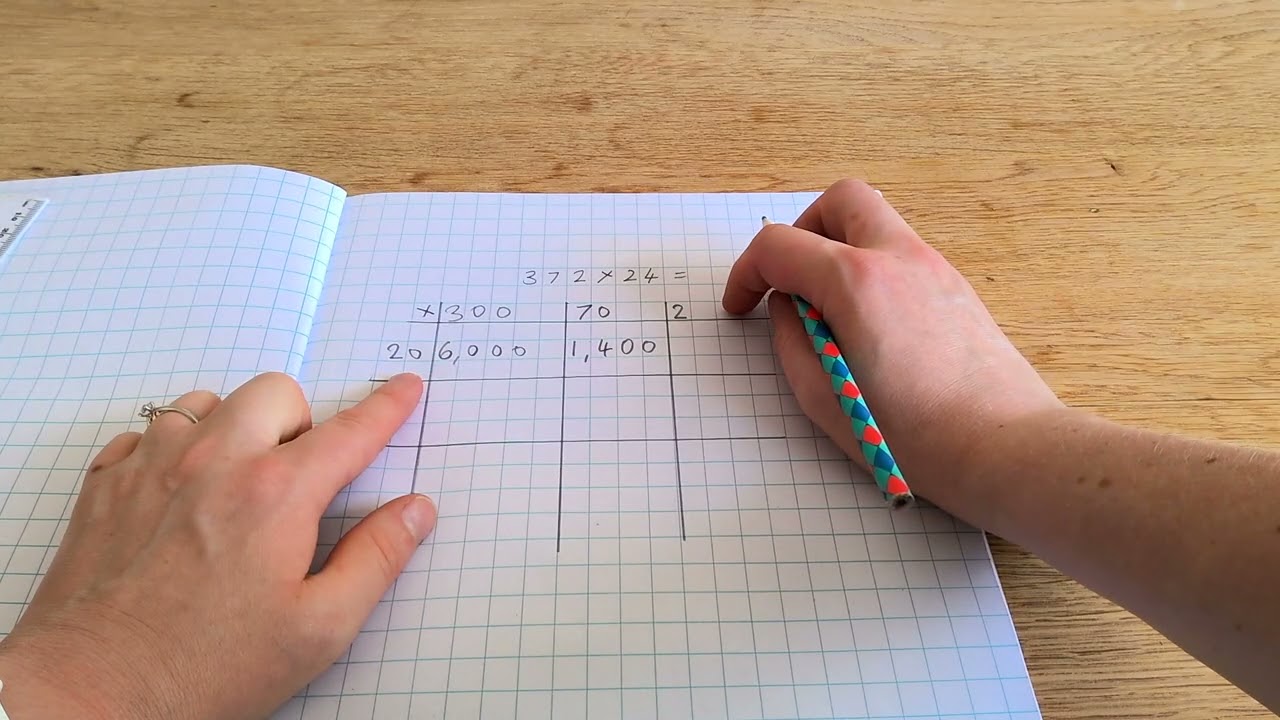 372 × 24 =
× 300 70 2
20 6,000 1,400